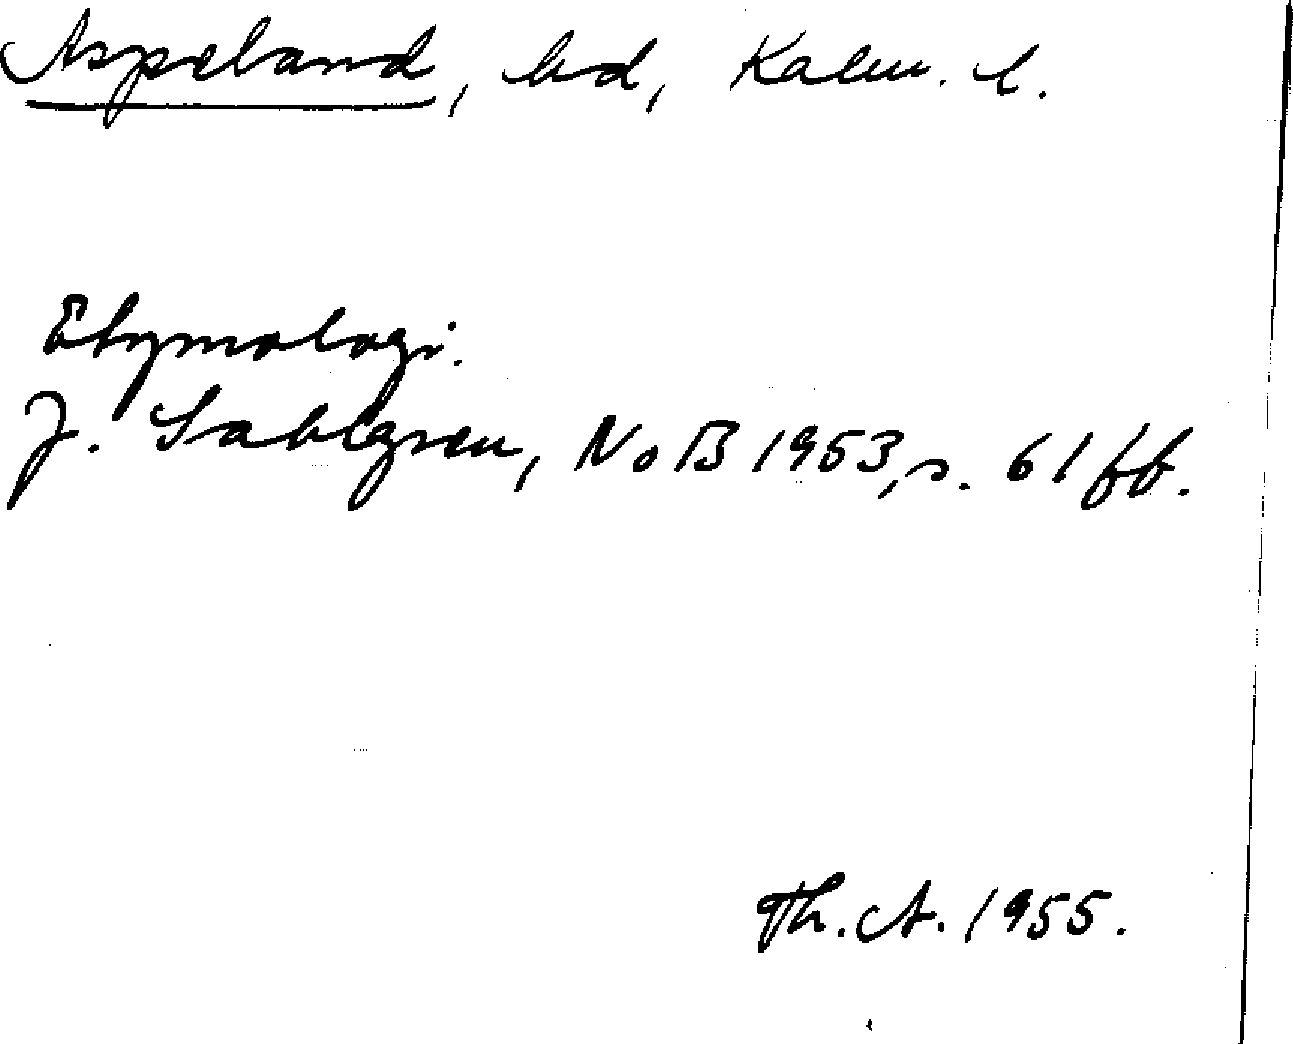 Aspeland, hd, Kalm. l.
Etymologi.
J. Sahlgren, NoB 1953, s. 61 ff.
Th. A. 1955.